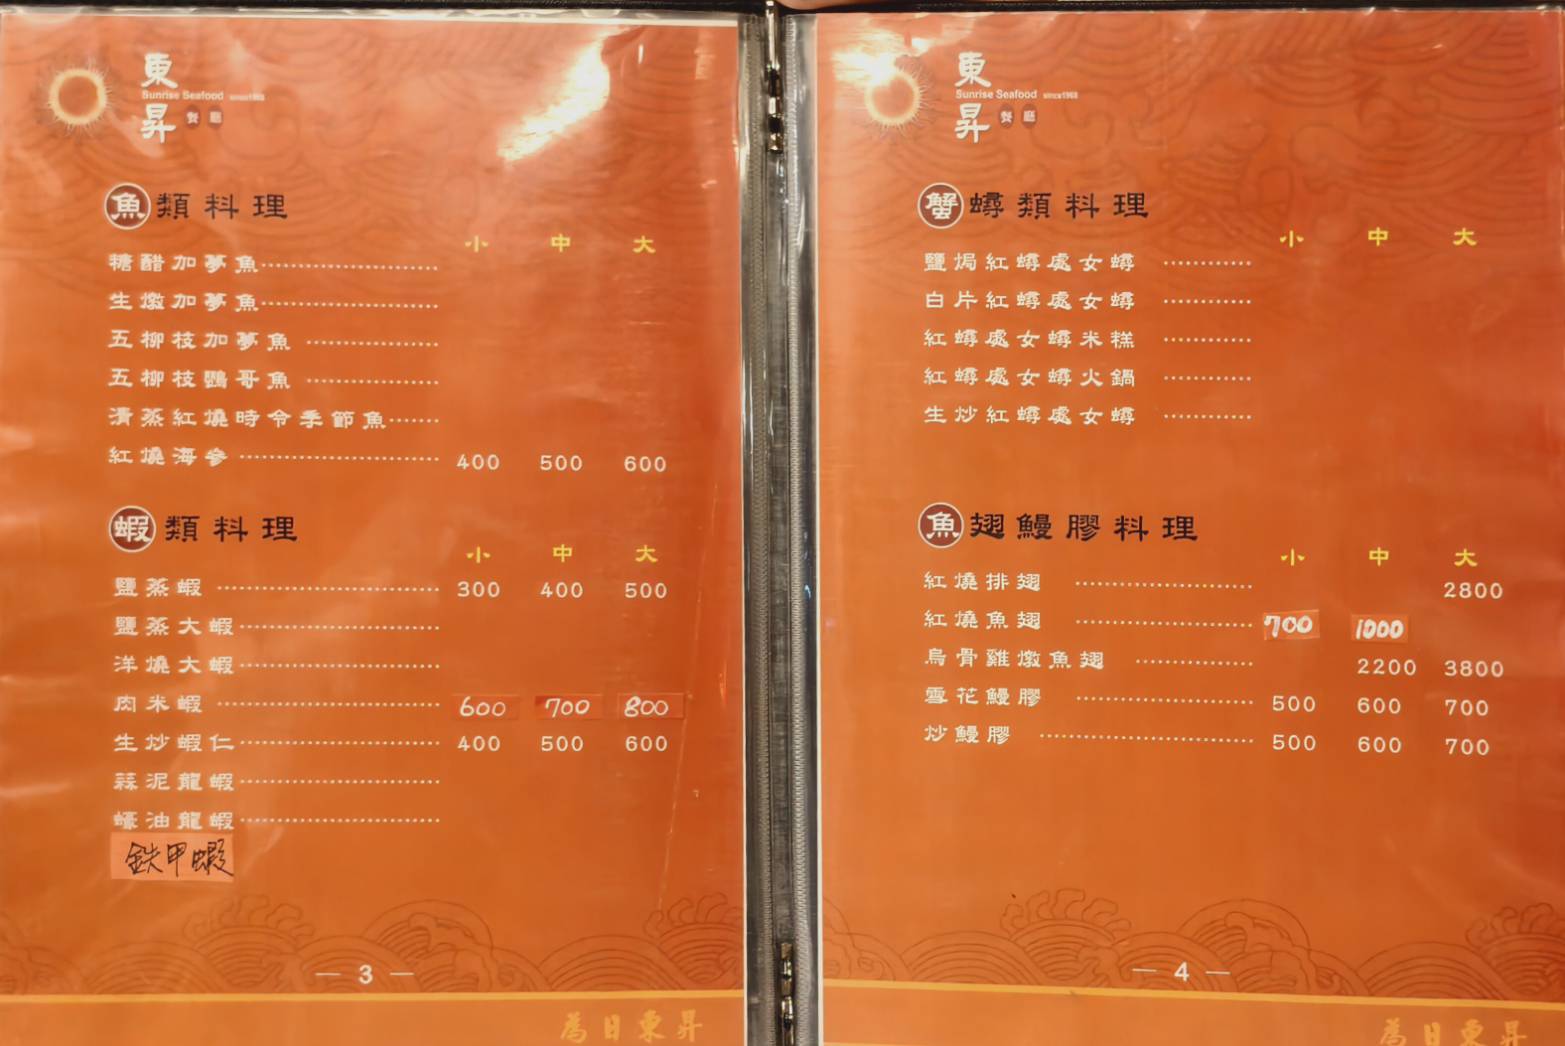 東昇
Sunrise Seafood since1968
餐廳
魚類料理
小 中 大
糖醋加夢魚
生燉加夢魚
五柳枝加夢魚
五柳枝鸚哥魚
清蒸紅燒時令季節魚
紅燒海參 400 500 600
蝦類料理
小 中 大
鹽蒸蝦 300 400 500
鹽蒸大蝦
洋燒大蝦
肉米蝦 600 700 800
生炒蝦仁 400 500 600
蒜泥龍蝦
蠔油龍蝦
鉄甲蝦
— 3 —
為日東昇
東昇
Sunrise Seafood since1968
餐廳
蟹蟳類料理
小 中 大
鹽焗紅蟳處女蟳
白片紅蟳處女蟳
紅蟳處女蟳米糕
紅蟳處女蟳火鍋
生炒紅蟳處女蟳
魚翅鰻膠料理
小 中 大
紅燒排翅 2800
紅燒魚翅 700 1000
烏骨雞燉魚翅 2200 3800
雪花鰻膠 500 600 700
炒鰻膠 500 600 700
— 4 —
為日東昇